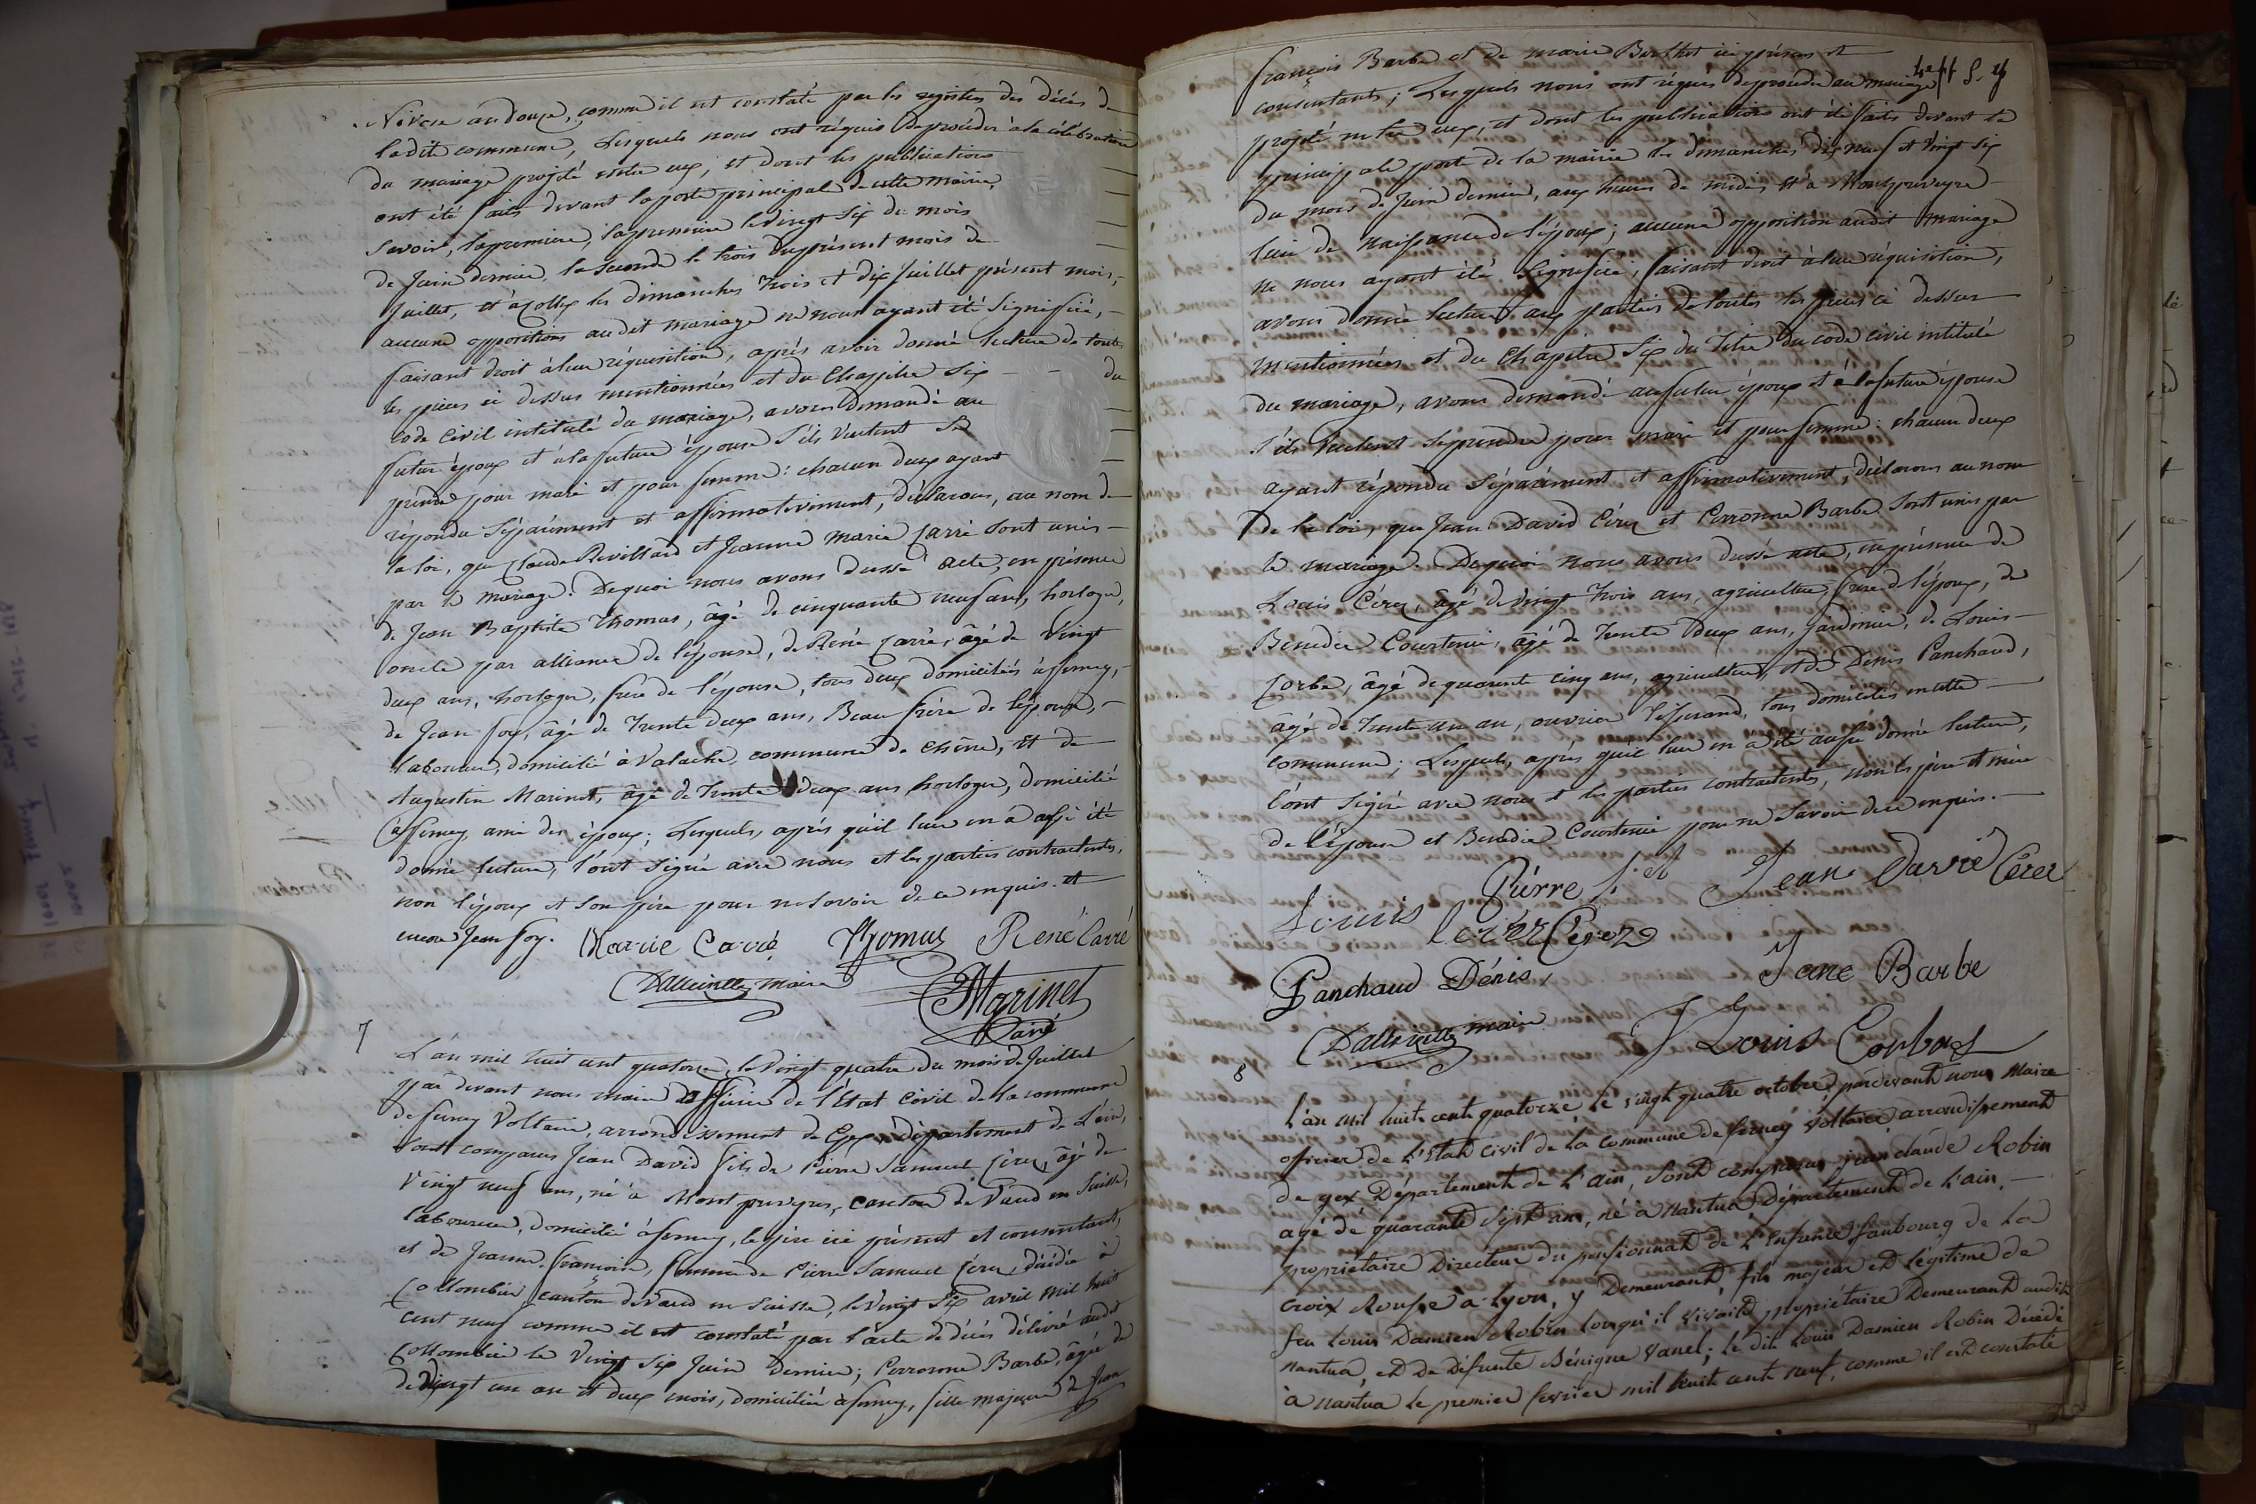 Nivose an douze, comme il est constaté par les registres des décès de
ladite commune, Lesquels nous ont réquis de procéder à la célébration
du mariage projeté entre eux, et dont les publications
ont été faites devant la porte principal de cette mairie,
Savoir, la premiere, la premiere le vingt Six du mois
de Juin dernier, la Seconde le trois du présent mois de
Juillet, et à Collex les dimanches trois et dix Juillet présent mois,
aucune oppositions audit mariage ne nous ayant été Signifiée,
faisant droit à leur réquisition, après avoir donné lecture de toutes
les pièces ci dessus mentionnées et du Chapitre Six - - du
code Civil intitulé du mariage, avons demandé au
futur époux et à la future épouse S'ils veulent Se
prendre pour mari et pour femme: chacun deux ayant
répondu Séparément et affirmativement, déclarons, au nom de
la loi, que Claude Revillard et Jeanne marie Carré Sont unis
par le mariage. Dequoi nous avons dressé acte, en présence
de Jean Baptiste Thomas, âgé de cinquante neuf ans, horloger,
oncle par alliance de l'épouse, de René Carré, âgé de vingt
deux ans, horloger, frère de l'épouse, tous deux domiciliés à ferney,
de Jean foy, âgé de trente deux ans, Beau frère de l'époux,
laboureur, domicilié à Valache, commune de Chêne, et de
Augustin Marinet, âgé de trente deux ans horloger, domicilié
à ferney, ami des époux; Lesquels, après qu'il leur en a aussi été
donné lecture, l'ont Signé avec nous et les parties contractantes,
non l'époux et Son père pour ne Savoir de ce enquis. et
encore Jean foy. Marie Carré Thomas René Carré
Dallinville maire
Marinet
Carré
7
L'an mil huit cent quatorze, le vingt quatre du mois de Juillet
par devant nous maire officier de l'État Civil de la commune
de ferney Voltaire, arrondissement de Gex, département de L'ain,
Sont comparus Jean David fils de Pierre Samuel Cérez, âgé de
vingt neuf ans, né à Mont preveyres, canton de Vaud en Suisse,
laboureur, domicilié à ferney, le père ici présent et consentant,
et de Jeanne françoise, femme de Pierre Samuel Cérez, décédée à
Collombier canton de vaud en Suisse, le vingt Six avril mil huit
cent neuf comme il est constaté par l'acte de décès délivré audit
Collombier le Vingt Six Juin Dernier; Perronne Barbe, âgée de
de vingt un an et deux mois, domiciliée à ferney, fille majeure de Jean
françois Barbe et de marie Berthet ici présens et
consentants; Lesquels nous ont réquis de procéder au mariage
projeté entre eux, et dont les publications ont été faites devant la
principale porte de la mairie les dimanches dix neuf et vingt Six
du mois de Juin dernier, aux heures de midi, et à Montpreveyre
lieu de naissance de l'époux; aucune opposition audit mariage
ne nous ayant été Signifiée, faisant droit à leur réquisition,
avons donné lecture aux parties de toutes les pièces ci dessus
mentionnées et du Chapitre Six du Titre du code civil intitulé
du mariage, avons demandé au futur époux et à la future épouse
s'ils veulent Se prendre pour mari et pour femme: chacun deux
ayant répondu Séparément et affirmativement, déclarons au nom
de la loi, que Jean David Cérez et Perronne Barbe Sont unis par
le mariage. Dequoi nous avons dressé acte, en présence de
Louis Cérez, âgé de vingt trois ans, agriculteur frère de l'époux, de
Benedic Courtenie, âgé de trente deux ans, jardinier, de Louis
Corba, âgé de quarente cinq ans, agriculteur, et de Denis Panchaud,
âgé de trente un an, ouvrier tisserand, tous domiciliés en cette
commune; Lesquels, après qu'il leur en a été aussi donné lecture,
l'ont Signé avec nous et les parties contractantes, non les père et mère
de l'épouse et Benedic Courtenie pour ne Savoir de ce enquis.
Pierre Jean Davie Cérez
Louis Cerez
Panchaud Dénis, Jane Barbe
Dallinville maire Louis Corbaz
8
L'an mil huit cent quatorze le vingt quatre octobre, pardevant nous Maire
officier de L'Etat Civil de la Commune de ferney Voltaire arrondissement
de gex Département de L'ain, Sont comparus jean claude Robin
agé de quarante Sept ans, né à Nantua Département de L'ain,
propriétaire Directeur du pensionnat de L'Enfance faubourg de La
Croix Rousse à Lyon, y Demeurant, fils majeur et légitime de
feu Louis Damien Robin lorsqu'il vivait propriétaire Demeurant audit
nantua, et de Défunte Bénigne Vanel; le dit Louis Damien Robin Décédé
à Nantua le premier fevrier mil huit cent neuf, comme il est constaté